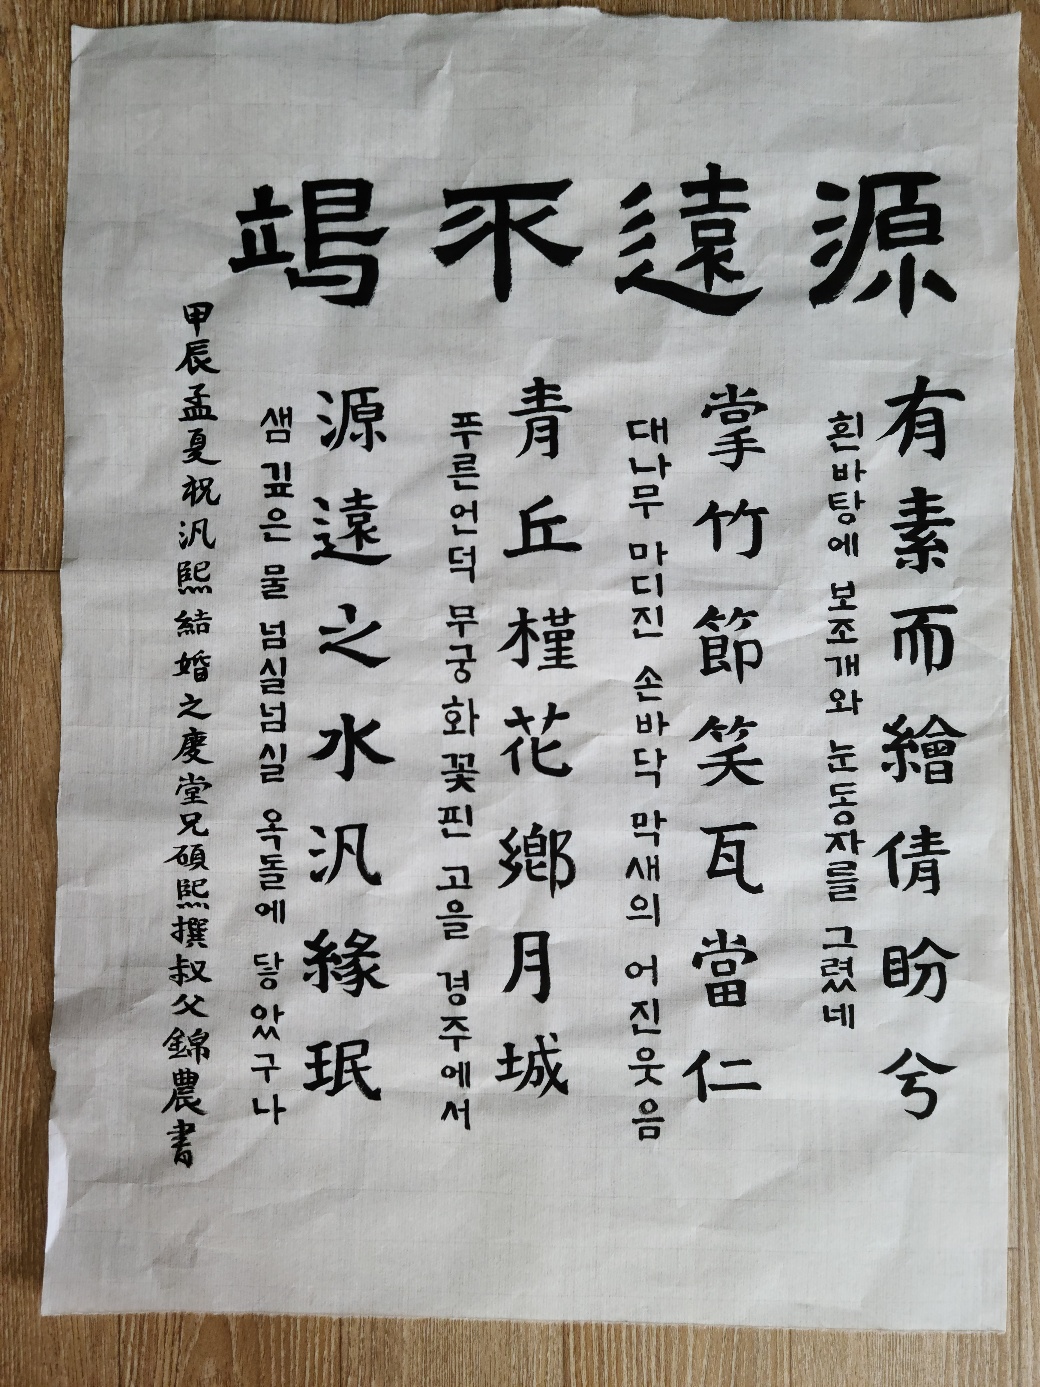 源遠不竭
有素而繪倩盼兮
흰바탕에 보조개와 눈동자를 그렸네
掌竹節笑瓦當仁
대나무 마디진 손바닥 막새의 어진웃음
青丘槿花鄉月城
푸른언덕 무궁화꽃핀 고을 경주에서
源遠之水汎緣珉
샘 깊은 물 넘실넘실 옥돌에 닿았구나
甲辰孟夏祝汎熙結婚之慶堂兄碩熙撰叔父錦農書